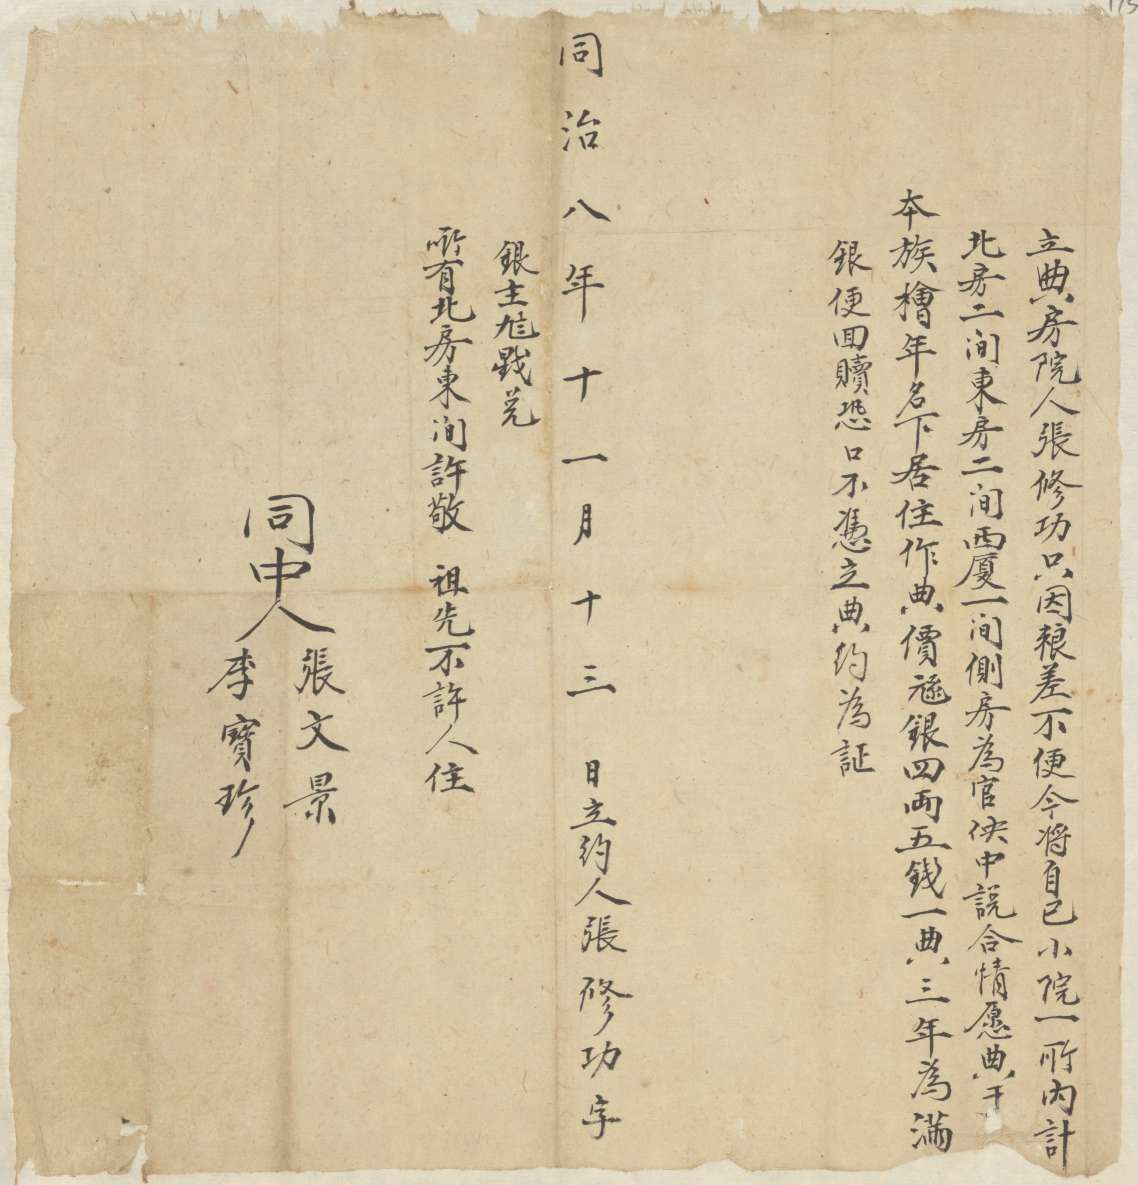 立典房院人張修功只因粮差不便今将自已小院一所内計
北房二间東房二间西廈一间側房為官伕中説合情愿典于
本族檜年名下居住作典價銀四両五錢一典三年為滿
銀便囬贖恐口不憑立典約為証
同治八年十一月十三日立約人張修功字
銀主戥兑
所有北房東间許敬 祖先不許人住
同中人
張文景
李寶珍